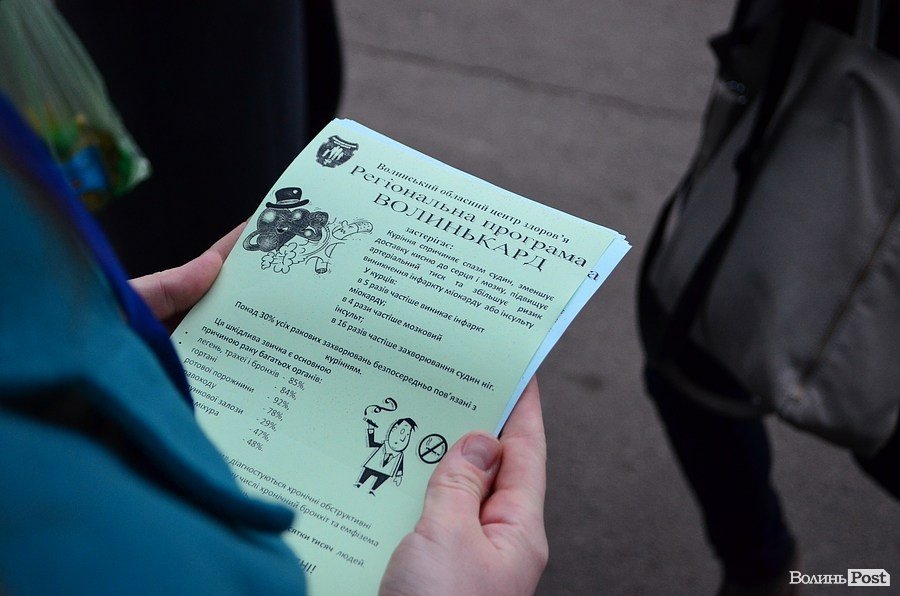 Волинський обласний центр здоров'я
Регіональна програма
ВОЛИНЬКАРД
застерігає:
Куріння спричиняє спазм судин, зменшує
доставку кисню до серця і мозку, підвищує
артеріальний тиск та збільшує ризик
виникнення інфаркту міокарду або інсульту
У курців:
в 5 разів частіше виникає інфаркт
міокарду;
в 4 рази частіше мозковий
інсульт;
в 16 разів частіше захворювання судин ніг.
Понад 30% усіх ракових захворювань безпосередньо пов'язані з
курінням.
Ця шкідлива звичка є основною
причиною раку багатьох органів:
легень, трахеї і бронхів - 85%,
гортані - 84%,
ротової порожнини - 92%,
- 78%,
залози - 29%,
міхура - 47%,
- 48%.
діагностуються хронічні обструктивні
числі хронічний бронхіт та емфізема
тисяч людей.
ВолиньPost